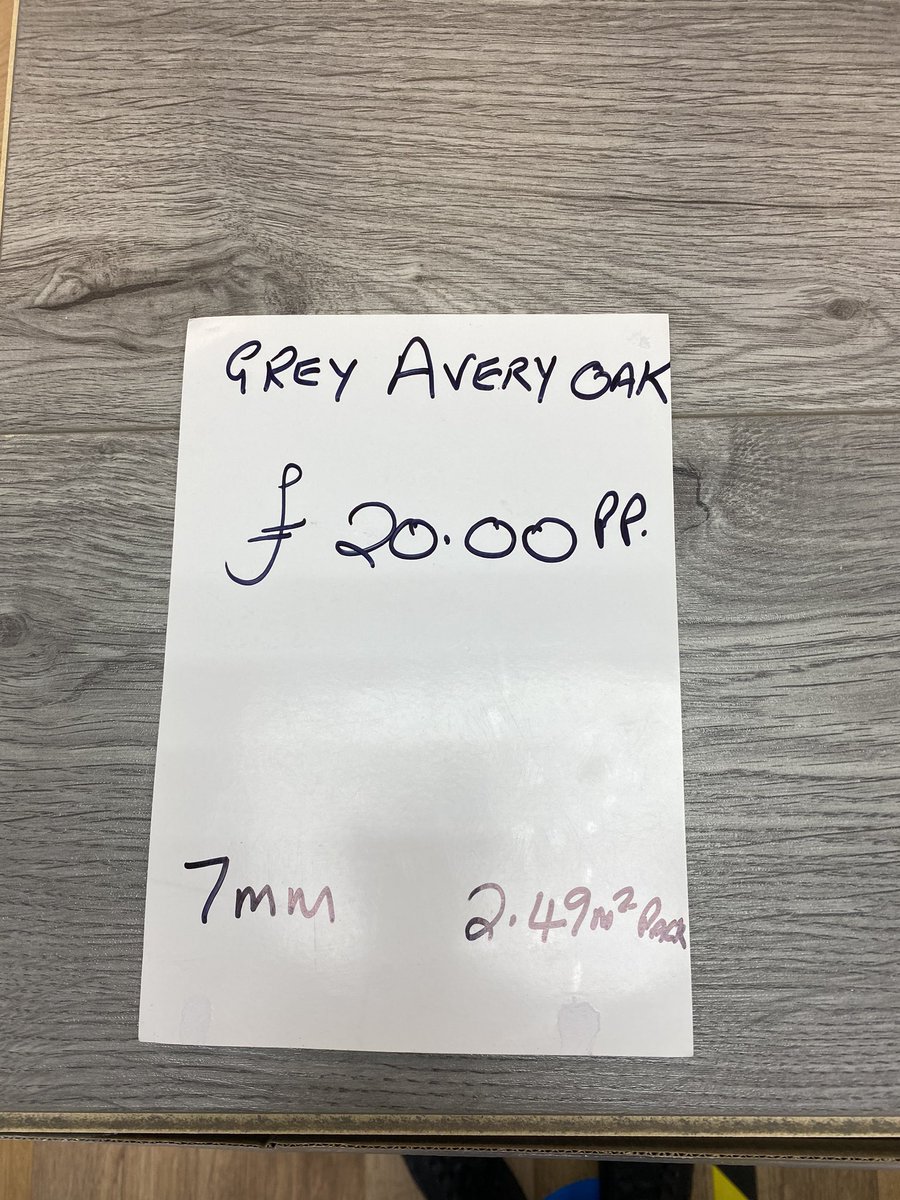 GREY AVERY OAK
£ 20.00 PP.
7mm 2.49m² PACK